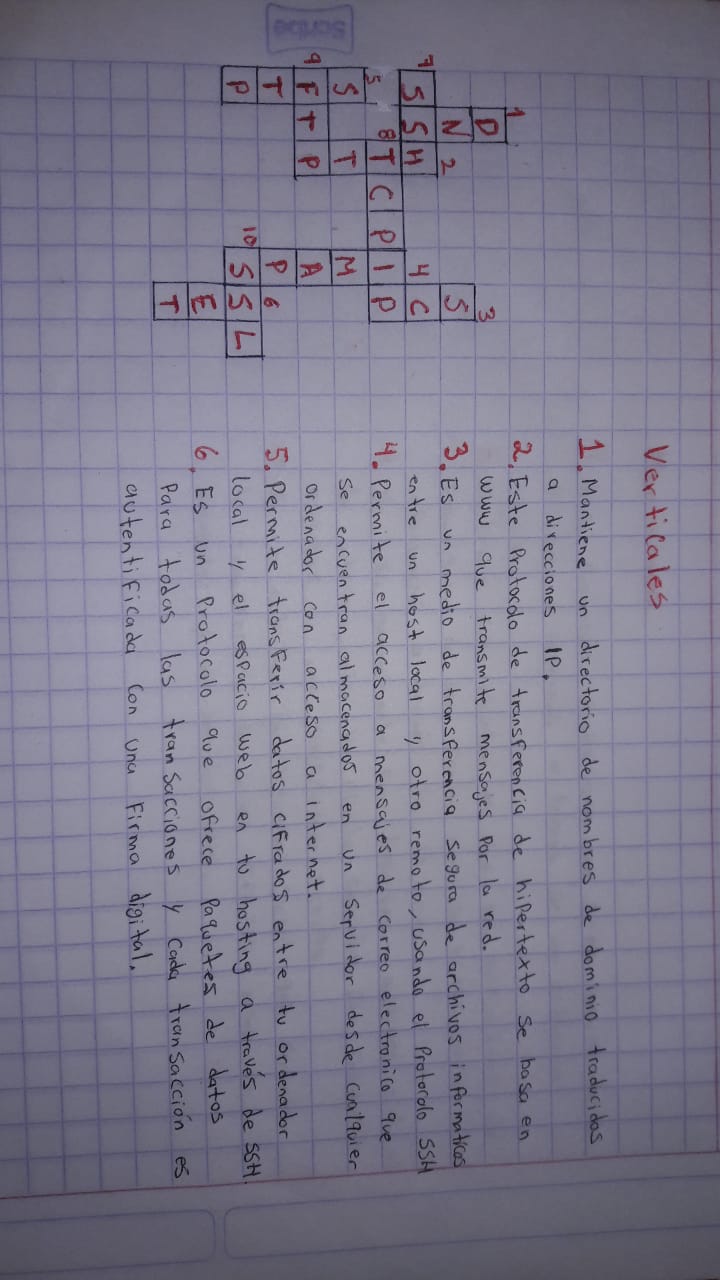 Scribe
1
D 3
N 2 S
7 S S H 4 C
5 8 T C P I P
S T M
9 F T P A
T P 6
P 10 S S L
E
T
Verticales
1. Mantiene un directorio de nombres de dominio traducidos
a direcciones IP.
2. Este Protocolo de transferencia de hipertexto se basa en
www que transmite mensajes por la red.
3. Es un medio de transferencia segura de archivos informaticos
entre un host local y otro remoto, usando el Protocolo SSH
4. Permite el acceso a mensajes de correo electronico que
se encuentran almacenados en un servidor desde cualquier
ordenador con acceso a internet.
5. Permite transferir datos cifrados entre tu ordenador
local y el espacio web en tu hosting a través de SSH.
6. Es un Protocolo que ofrece paquetes de datos
Para todas las transacciones y cada transacción es
autentificada con una firma digital.